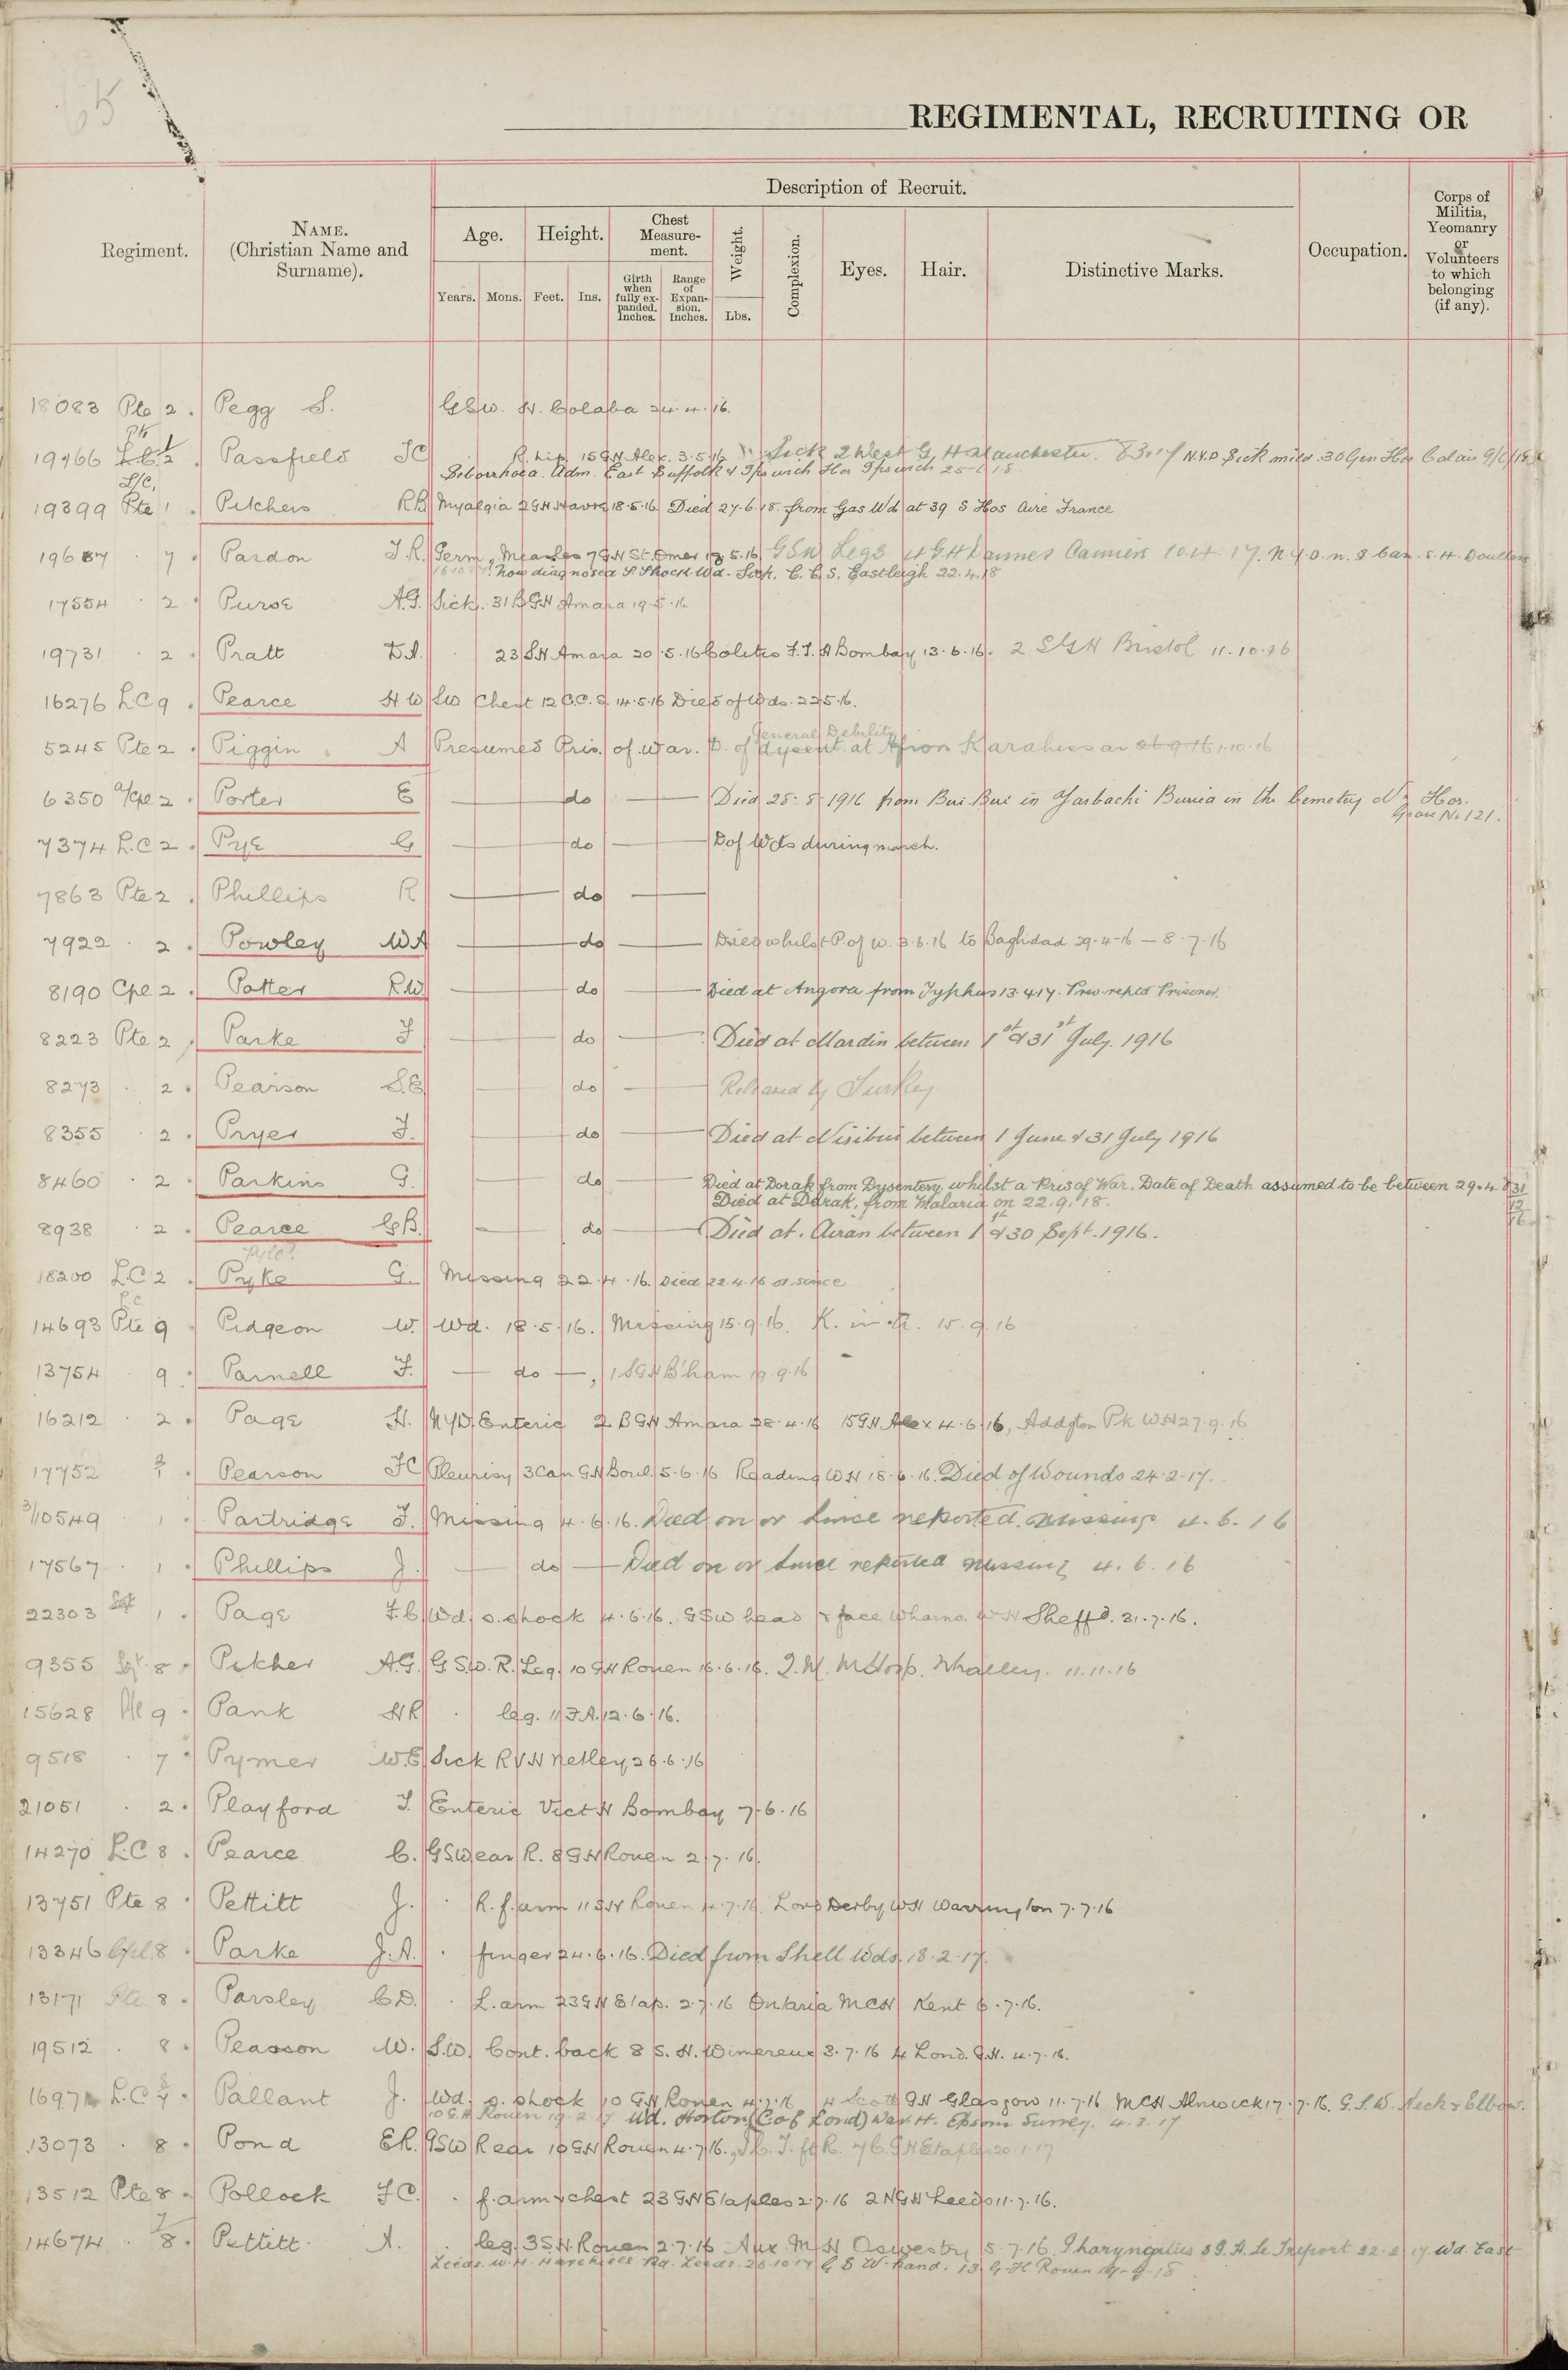 65
REGIMENTAL, RECRUITING OR
Regiment.
NAME.
(Christian Name and
Surname).
Description of Recruit.
Age.
Height.
Chest
Measure-
ment.
Weight.
Complexion.
Eyes.
Hair.
Distinctive Marks.
Occupation.
Corps of
Militia,
Yeomanry
or
Volunteers
to which
belonging
(if any).
Years.
Mons.
Feet.
Ins.
Girth
when
fully ex-
panded.
Inches.
Range
of
Expan-
sion.
Inches.
Lbs.
18083 Pte 2 . Pegg S. GSW. H. Colaba 24.4.16.
19766 L.C. 2 . Passfield FC R. hip 15GH Alex. 3.5.16 Sick 2 West G. H Manchester. N.Y.D Sick mild. 30 Gen Hos Calais
Seborrhoea. Adm. East Suffolk & Ipswich Hos Ipswich
19399 Pte 1 . Pitchers RB Myalgia 2GH Havre 18.5.16 Died 27.6.18. from Gas Wd at 39 S Hos Aire France
19687 . 7 . Pardon J.R. Germ. Measles 7GH St Omer 5.16 GSW Legs 4GH Dannes Camiers 10.4.17. N.Y.D.n.
now diagnosed S Shock Wd. Sick. C.C.S. Eastleigh 22.4.18
17554 . 2 . Purse A.G. Sick. 31 BGH Amara 19.5.16
19731 . 2 . Pratt D.A. 23 SH Amara 20.5.16 Colitis F.T.H Bombay 13.6.16. 2 SGH Bristol 11.10.16
16276 LC 9 . Pearce HW SW Chest 12 C.C.S. 14.5.16 Died of Wds. 22.5.16.
General Debility
5245 Pte 2 . Piggin A Presumed Pris. of war. D. of dysent. at Afion Karahissar 1.10.16
6350 A/Cpl 2 . Porter E do Died 25.8.1916 from Beri Beri in Yarbachi Burria in the Cemetery Hos.
Grave No 121.
7374 L.C 2 . Pye G do D of Wds during march.
7863 Pte 2 . Phillips R do
7922 . 2 . Powley WA do Died whilst P. of W. 3.6.16 to Baghdad 29-4-16 – 8.7.16
8190 Cpl 2 . Potter R.W do Died at Angora from Typhus 13.4.17. Prev reptd Prisoner.
8223 Pte 2 . Parke F do Died at Mardin between 1st & 31st July. 1916
8273 . 2 . Pearson S.E do Released by Turkey
8355 . 2 . Pryer F. do Died at Nisibin between 1 June & 31 July 1916
8460 . 2 . Parkins G. do Died at Dorak from Dysentery whilst a Pris of War. Date of Death assumed to be between 29.4 & 31/12/16
Died at Darak, from Malaria on 22.9.18.
8938 . 2 . Pearce G.B. do Died at. Airan between 1st & 30 Sept. 1916.
18200 L.C 2 . Pyke G. Missing 22.4.16. Died 22.4.16 or since
14693 Pte 9 . Pidgeon W. Wd. 18.5.16. Missing 15.9.16. K. in A. 15.9.16
13754 . 9 . Parnell F. do , 1 SGH B'ham 19.9.16
16212 . 2 . Page H. NYD. Enteric 2 BGH Amara 28.4.16 15GH Alex 4.6.16, Addgton Pk WH 27.9.16
17752 . Pearson FC Pleurisy 3 Can GH Boul. 5.6.16 Reading WH 18.6.16. Died of Wounds 24.2.17.
3/10549 . 1 . Partridge F. Missing 4.6.16. Died on or since reported missing 4.6.16
17567 . 1 . Phillips J. do Died on or since reported missing 4.6.16
22303 Sgt 1 . Page F.C. Wd. s. shock 4.6.16. GSW head & face Wharnc. WH Sheffd. 31.7.16.
9355 Sgt. 8 . Pitcher A.G. GSW. R. Leg. 10 GH Rouen 16.6.16. Q.M. M Hosp. Whalley. 11.11.16
15628 Pte 9 . Pank HR . leg. 11 F.A. 12.6.16.
9518 . 7 . Pymer W.E Sick RVH Netley 26.6.16
21051 . 2 . Playford T. Enteric Vict H Bombay 7.6.16
14270 L.C 8 . Pearce C. GSW ear R. 8 GH Rouen 2.7.16.
13751 Pte 8 . Pettitt J. . R. f. arm 11 SH Rouen 4.7.16. Lord Derby WH Warrington 7.7.16
13346 Cpl. 8 . Parke J.A. . finger 24.6.16. Died from Shell Wds. 18.2.17.
13171 Pte. 8 . Parsley C.D. . L. arm 23GH Etap. 2.7.16 Ontario MCH Kent 6.7.16.
19512 . 8 . Peasson W. S.W. Cont. back 8 S.H. Wimereux 3.7.16 4 Lond. G.H. 4.7.16.
16971 L.C 7 . Pallant J. Wd. s. shock 10 GH Rouen 4.7.16 4 Scott GH Glasgow 11.7.16 MCH Alnwick 17.7.16. G.S.W. Neck & Elbow.
10 G.H Rouen 19.2.17 Wd. Horton (Co of Lond) War. H. Epsom Surrey. 4.3.17
13073 . 8 . Pond E.R. GSW R ear 10 GH Rouen 4.7.16. I.C.T. ft R. 7 C.GH Etaples 20.1.17
13512 Pte 8 . Pollock FC. . f. arm & chest 23 GH Etaples 2.7.16 2 NGH Leeds 11.7.16.
14674 . 8 . Pettitt. A. . leg. 3 SH Rouen 2.7.16 Aux. M H Oswestry 5.7.16 Pharyngitis 3 G.H. Le Treport 22.2.17. Wd. East
Leeds. W.H. Harehills Rd. Leeds. 26.10.17 G S W. hand. 13. G.H Rouen